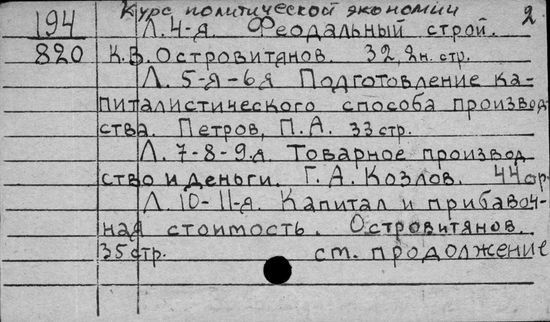 Курс политической экономии 2
194 Л. 4-я. Феодальный строй.
820 К.В. Островитянов. 32, 2н. стр.
Л. 5-я-6я Подготовление ка-
питалистического способа производ
ства. Петров, П.А. 33 стр.
Л. 7-8-9я. Товарное производ
ство и деньги. Г.А. Козлов. 44 ср.
Л. 10-11-я. Капитал и прибавоч-
ная стоимость. Островитянов.
35 стр. ст. продолжение